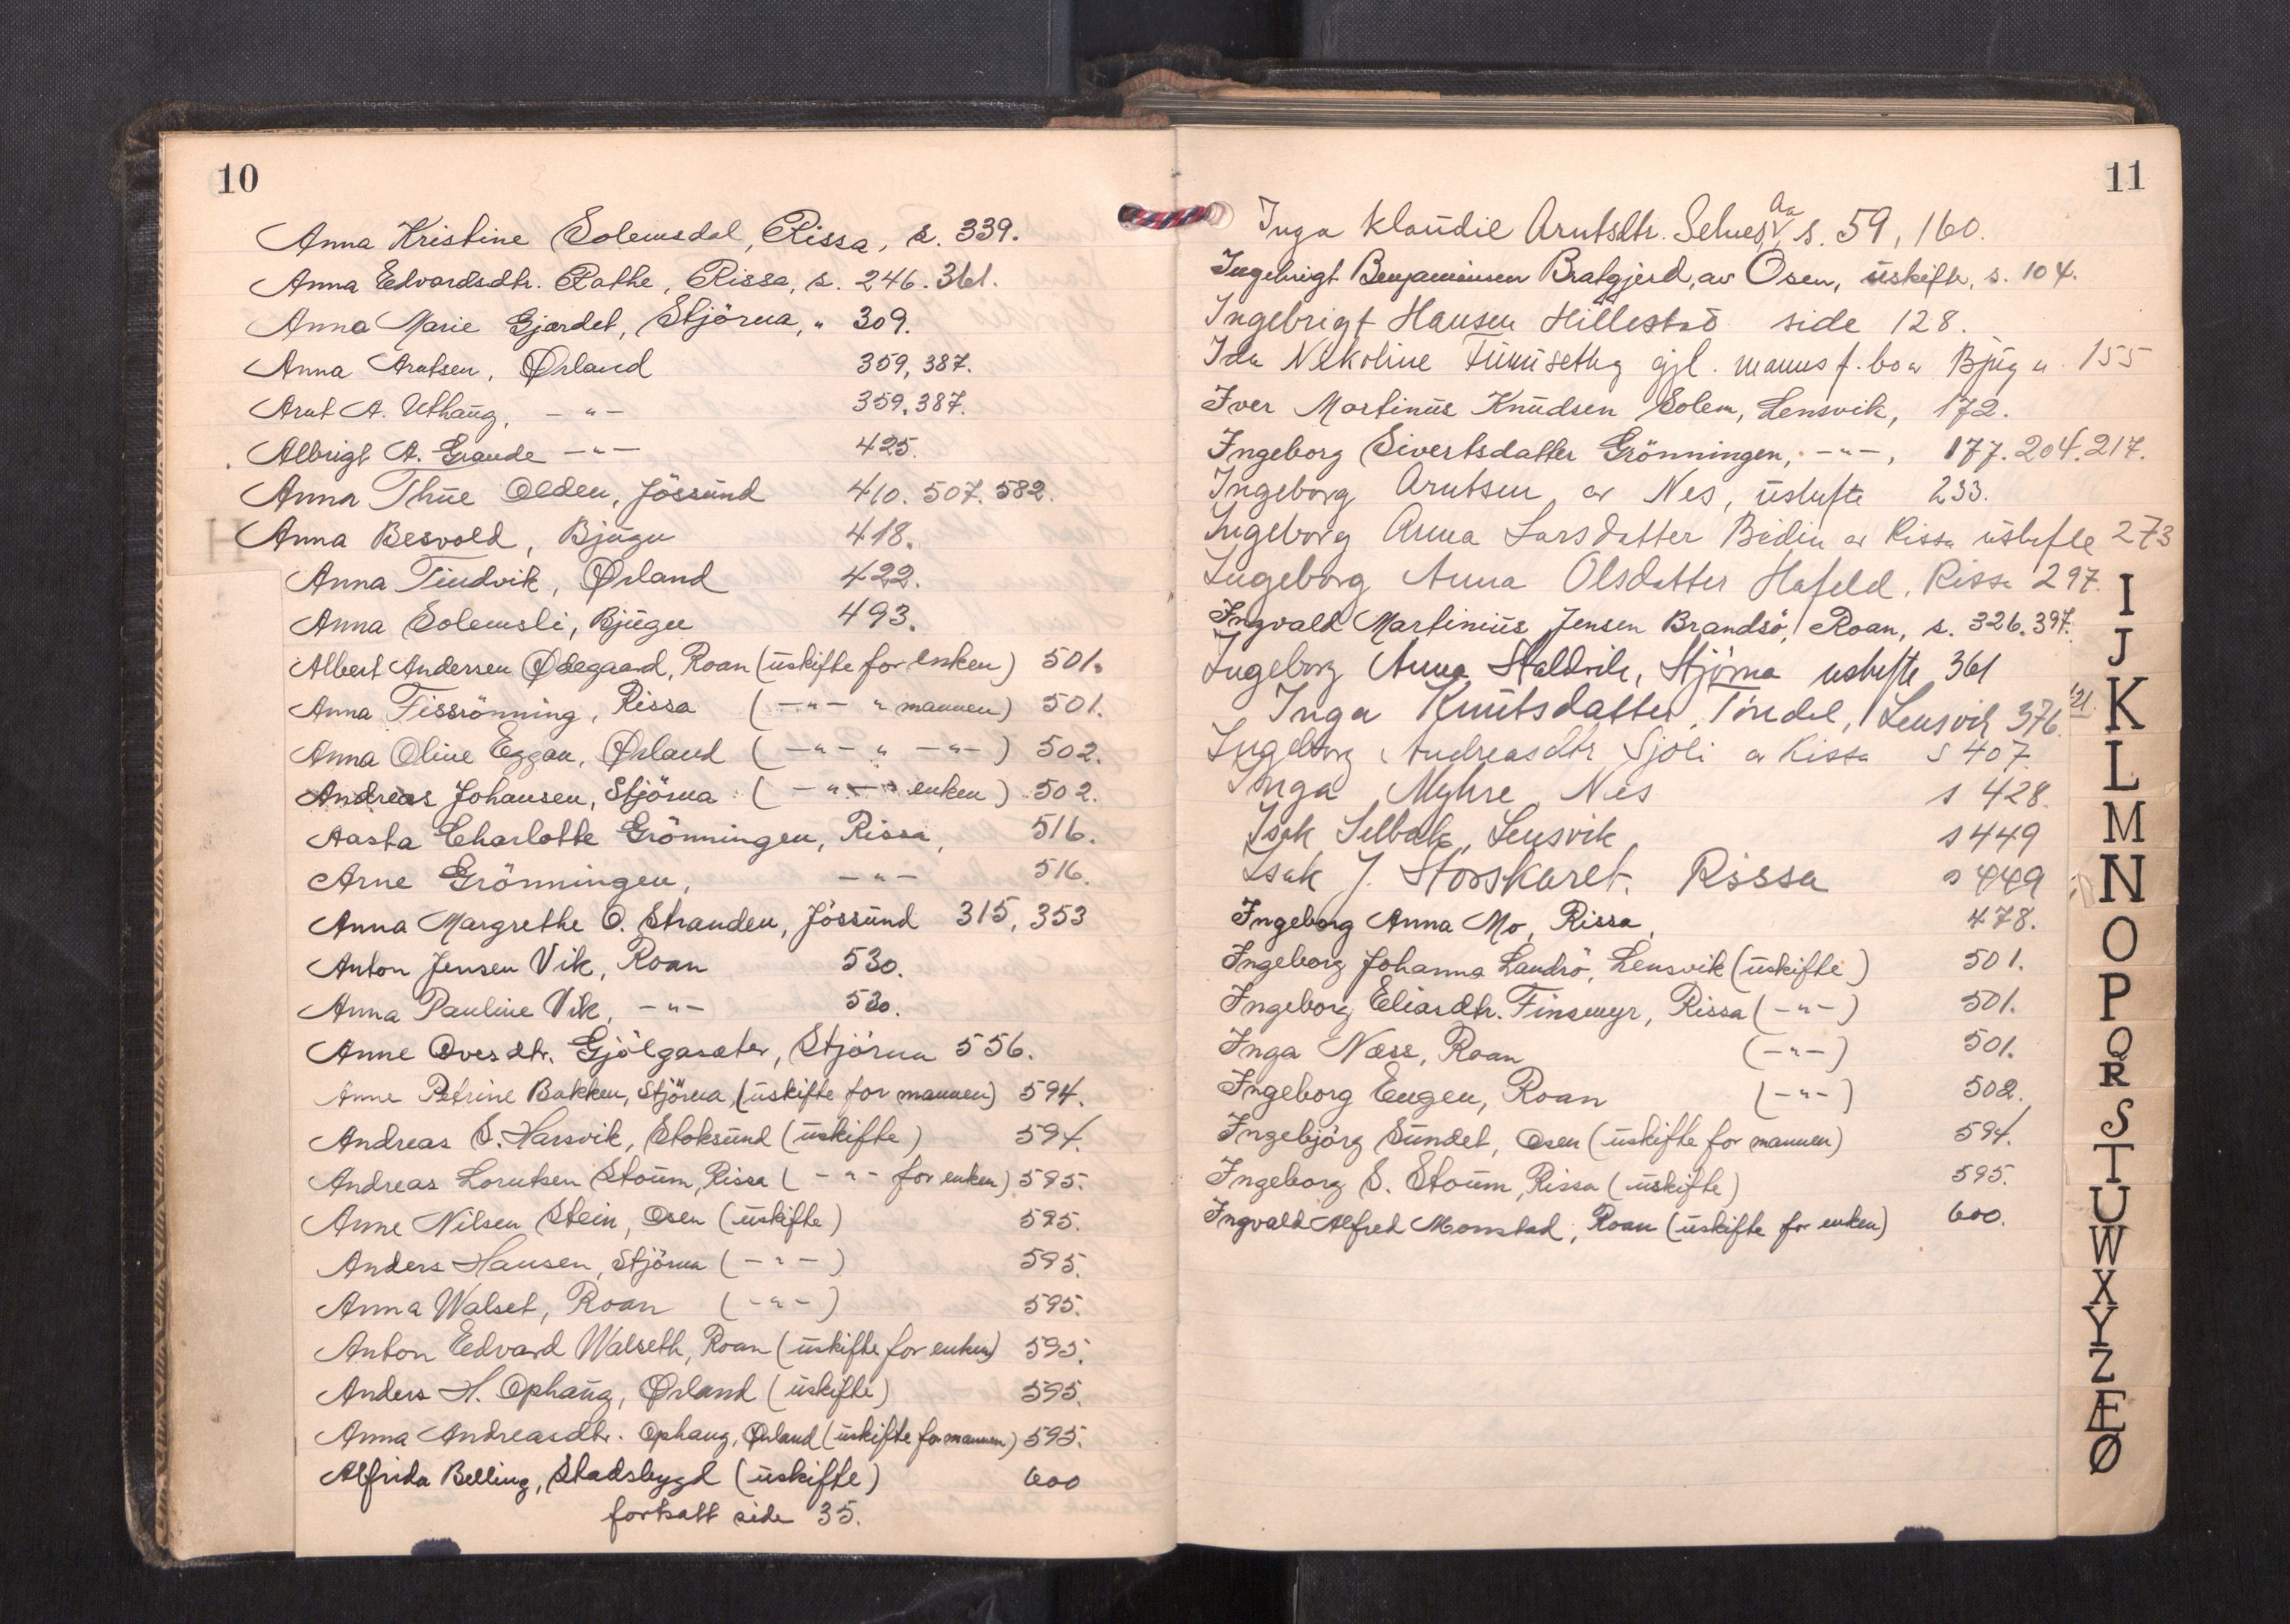 10
Anna Kristine Solemsdal, Rissa, s. 339.
Anna Edvardsdtr. Rathe, Rissa, s. 246. 361.
Anna Marie Gjærdet, Stjörna, " 309.
Anna Arntsen, Ørland 359, 387.
Arnt A. Uthaug, -"- 359. 387.
Albrigt A. Grande -"- 425.
Anna Thue Olden, Jössund 410. 507. 582.
Anna Besvold, Bjugn 418.
Anna Tindvik, Ørland 422.
Anna Solemsli, Bjugn 493.
Albert Andersen Ødegaard, Roan (uskifte for enken) 501.
Anna Fissrönning, Rissa (-"- " mannen) 501.
Anna Oline Eggan, Ørland (-"- " -"-) 502.
Andreas Johansen, Stjörna (-"- " enken) 502.
Aasta Charlotte Grönningen, Rissa, 516.
Arne Grönningen, -"- 516.
Anna Margrethe O. Stranden, Jössund 315, 353
Anton Jensen Vik, Roan 530.
Anna Pauline Vik, -"- 530.
Anne Ovesdtr. Gjölgasæter, Stjörna 556.
Anne Petrine Bakken, Stjörna, (uskifte for mannen) 594.
Andreas S. Harsvik, Stoksund (uskifte) 594.
Andreas Lorntsen Stoum, Rissa (-"- for enken) 595.
Anne Nilsen Stein, Osen (uskifte) 595.
Anders Hansen, Stjörna (-"-) 595.
Anna Walset, Roan (-"-) 595.
Anton Edvard Walseth, Roan (uskifte for enken) 595.
Anders H. Ophaug, Ørland (uskifte) 595.
Anna Andreasdtr. Ophaug, Ørland (uskifte for mannen) 595.
Alfrida Belling, Stadsbygd (uskifte) 600
fortsatt side 35.
11
Inga Klaudie Arntsdtr. Selnes, Aa s. 59, 160.
Ingebrigt Benjaminsen Bratgjerd, av Osen, uskifte, s. 104.
Ingebrigt Hansen Hilleströ side 128.
Ida Nikoline gjl. manns f. bo av Bjugn 155
Iver Martinus Knudsen Solem, Lensvik, 172.
Ingeborg Sivertsdatter Grönningen, -"-, 177. 204. 217.
Ingeborg Arntsen av Nes, uskifte 233.
Ingeborg Anna Larsdatter av Rissa uskifte 273
Ingeborg Anna Olsdatter Hafeld, Rissa 297.
Ingvald Martinius Jensen Brandsö, Roan, s. 326. 397.
Ingeborg Anna Staldvik, Stjörna uskifte 361
Inga Knutsdatter Töndel, Lensvik 376. 121.
Ingeborg Andreasdtr Sjöli av Rissa s 407.
Inga Myhre Nes s 428.
Isak Selbæk, Lensvik s 449
Isak J. Storskaret. Rissa s 449
Ingeborg Anna Mo, Rissa, 478.
Ingeborg Johanna Landrö, Lensvik (uskifte) 501.
Ingeborg Eliasdtr. Finsmyr, Rissa (-"-) 501.
Inga Næss, Roan (-"-) 501.
Ingeborg Engen, Roan (-"-) 502.
Ingebjörg Sundet, Osen (uskifte for mannen) 594.
Ingeborg S. Stoum, Rissa (uskifte) 595.
Ingvald Alfred Monstad, Roan (uskifte for enken) 600.
H
I
J
K
L
M
N
O
P
Q
R
S
T
U
W
X
Y
Z
Æ
Ø